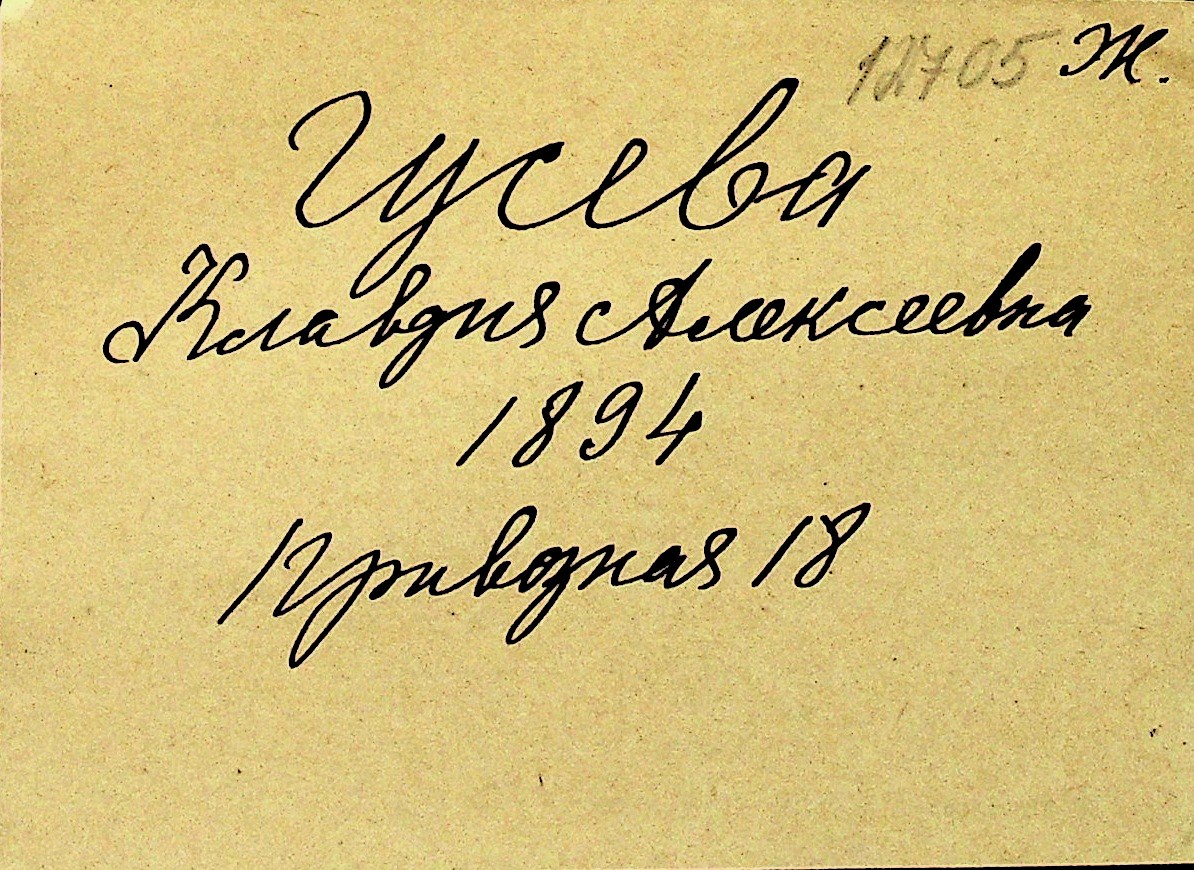 12705 Ж.
Гусева
Клавдия Алексеевна
1894
Привозная 18